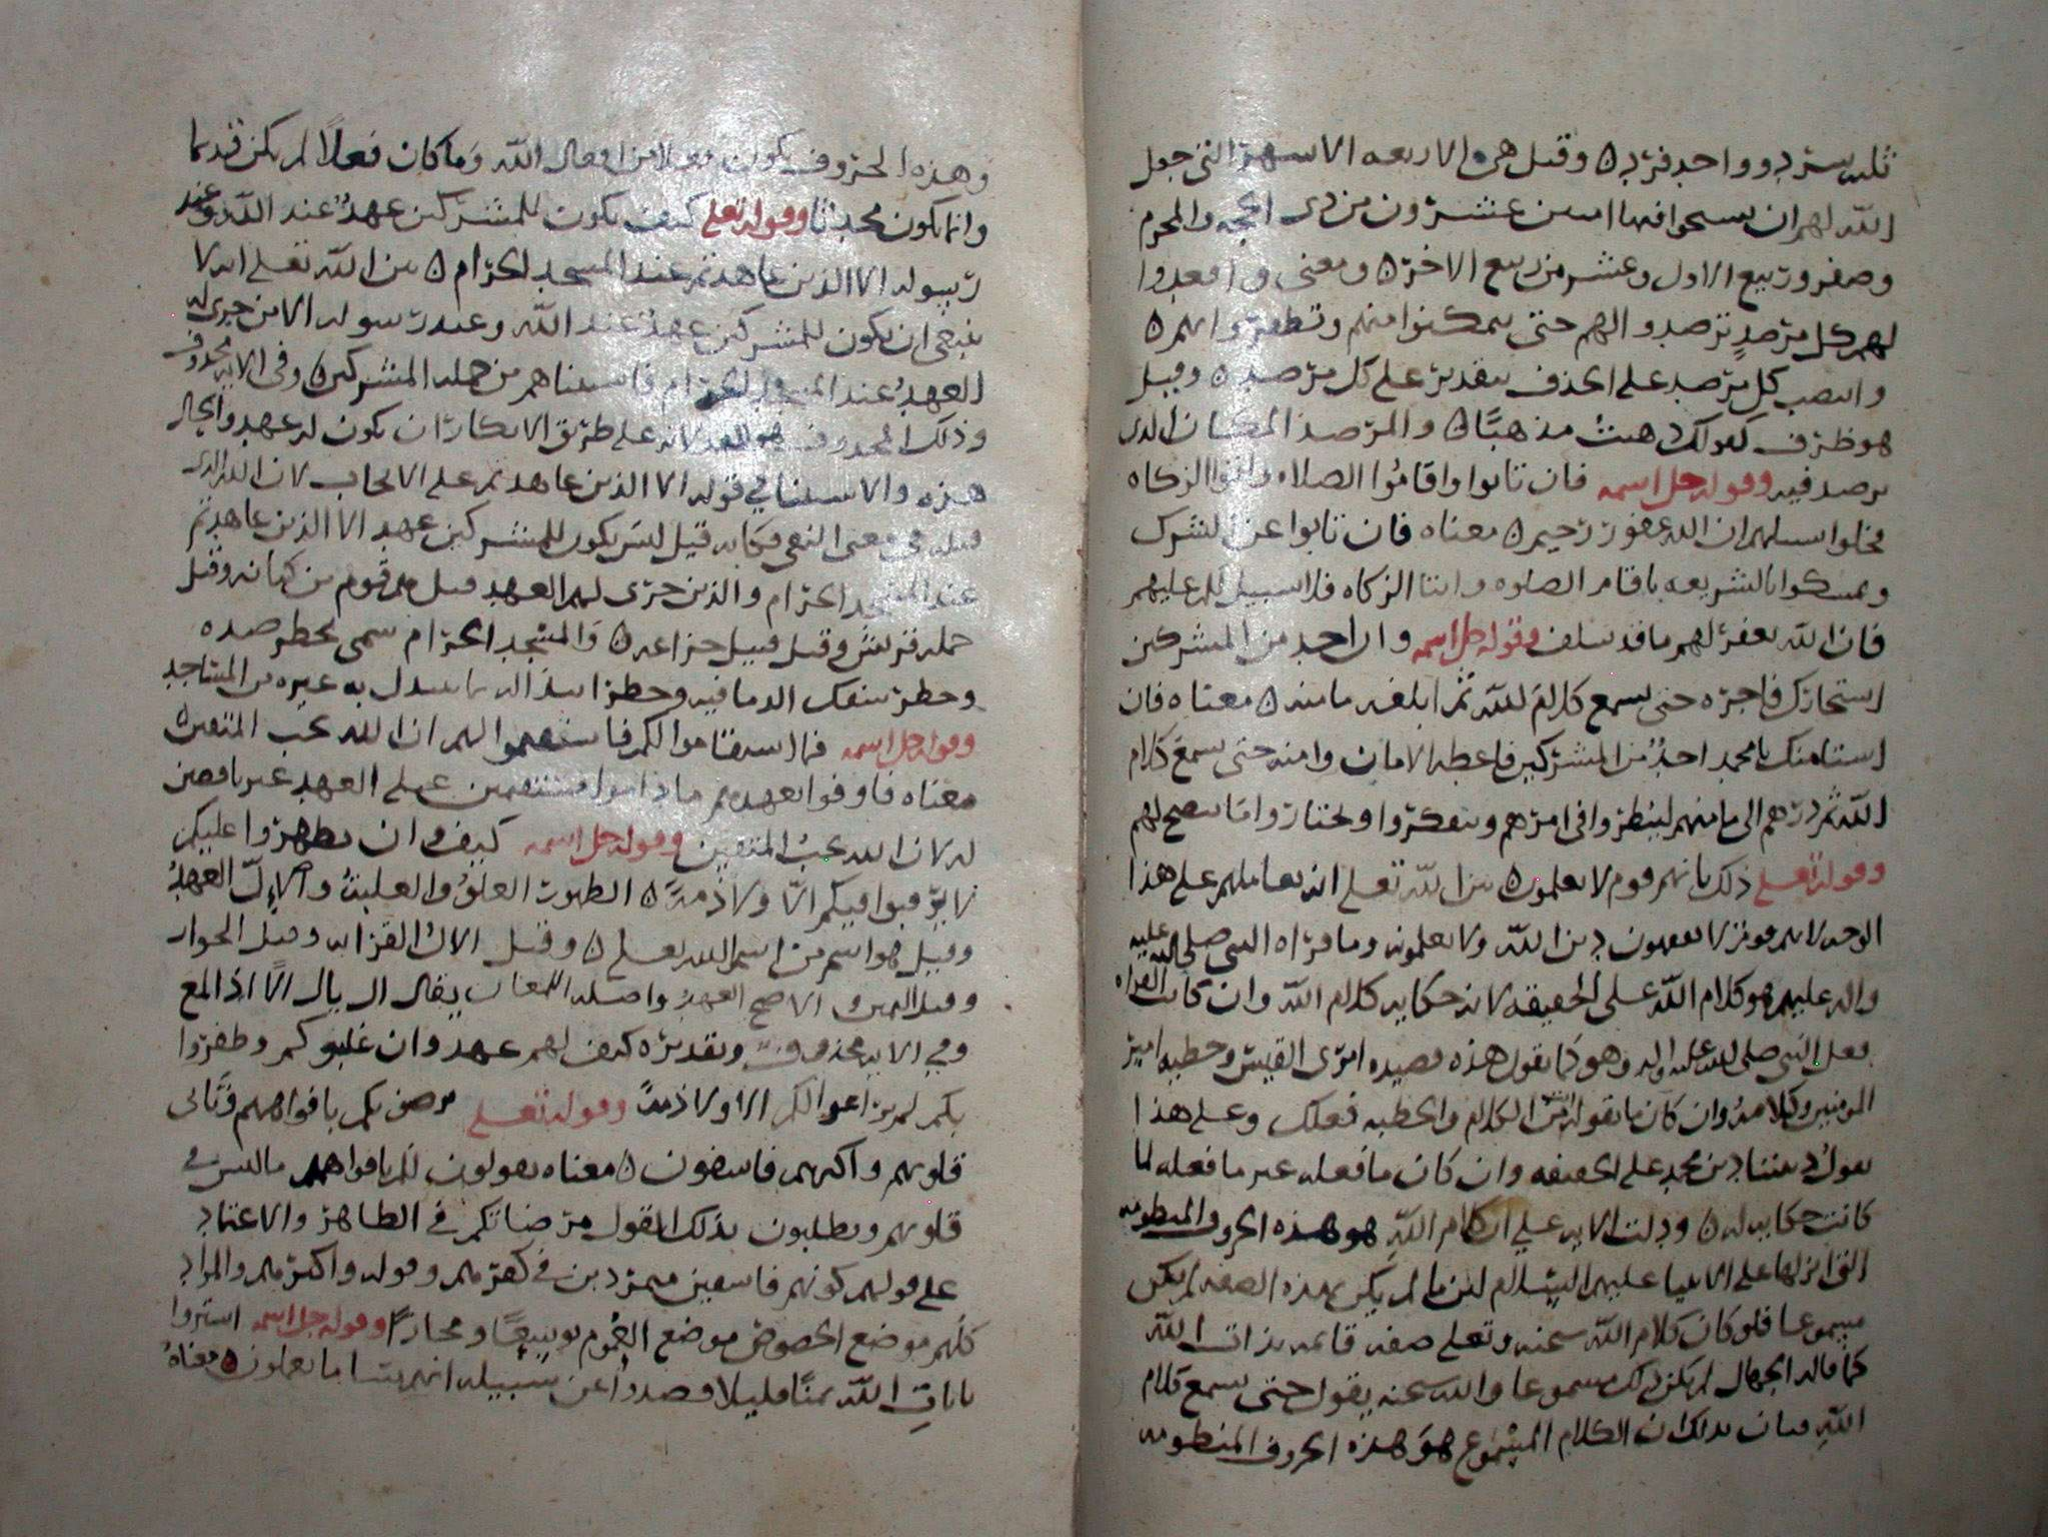 ثلثه سرد وواحد فرد ه وقيل هي الاربعه الاشهر التي جعل
الله لهم ان يسيحوا فيها امنين عشرون من ذي الحجه والمحرم
وصفر وربيع الاول وعشر من ربيع الاخر ه ومعنى واقعدوا
لهم كل مرصد ترصدوا لهم حتى تتمكنوا منهم وتظفروا بهم ه
وانتصب كل مرصد على الحذف بتقدير على كل مرصد ه وقيل
هو ظرف كقولك ذهبت مذهبًا ه والمرصد المكان الذي
يرصد فيه وقوله جل اسمه فان تابوا واقاموا الصلاه واتوا الزكاه
فخلوا سبيلهم ان الله غفور رحيم ه معناه فان تابوا عن الشرك
وتمسكوا بالشريعه باقام الصلوه وايتا الزكاه فلا سبيل لكم عليهم
فان الله يغفر لهم ما قد سلف وقوله جل اسمه وان احد من المشركين
استجارك فاجره حتى يسمع كلام الله ثم ابلغه مامنه ه معناه فان
استامنك يا محمد احدٌ من المشركين فاعطه الامان وامنه حتى يسمع كلام
الله ثم ردهم الى مامنهم لينظروا في امرهم ويتفكروا ويختاروا ما يصح لهم
وقوله تعلى ذلك بانهم قوم لا يعلمون ه بين الله تعلى انه يعاملهم على هذا
الوجه لانهم قوم لا يفقهون دين الله ولا يعلمونه وما قراه النبي صلى الله عليه
واله عليهم هو كلام الله على الحقيقه لانه حكايه كلام الله وان كانت القراه
فعل النبي صلى الله عليه واله وهو كما يقول هذه قصيده امرى القيس وخطبه امير
المومنين وكلامه وان كان ما يقوله من الكلام والخطبه فعلك وعلى هذا
يقول ديننا دين محمد على الحقيقه وان كان ما فعله غير ما فعله لما
كانت حكايه له ه ودلت الايه على ان كلام الله هو هذه الحروف المنظومه
التي انزلها على الانبيا عليهم السلام لان ما لم يكن بهذه الصفه لم يكن
مسموعا فلو كان كلام الله سبحنه وتعلى صفه قائمه بذات الله
كما قاله الجهال لم يكن ذلك مسموعا والله سبحنه يقول حتى يسمع كلام
الله فبان بذلك ان الكلام المسموع هو هذه الحروف المنظومه
وهذه الحروف يكون فعلا من افعال الله وما كان فعلاً لم يكن قديما
وانما يكون محدثا وقوله تعلى كيف يكون للمشركين عهدٌ عند الله وعند
رسوله الا الذين عاهدتم عند المسجد الحرام ه بين الله تعلى انه لا
ينبغي ان يكون للمشركين عهدٌ عند الله وعند رسوله الا من جرى له
العهد عند المسجد الحرام فاستثناهم من جمله المشركين ه وفي الايه محذوف
وذلك المحذوف هو لانه على طريق الانكار ان يكون له عهد والحال
هذه والاستثنا في قوله الا الذين عاهدتم على الايجاب لان الله الذي
قبله في معنى النفي فكانه قيل ليس يكون للمشركين عهد الا الذين عاهدتم
عند المسجد الحرام والذين جرى لهم العهد قيل هم قوم من كنانه وقيل
جمله قريش وقيل قبيل خزاعه ه والمسجد الحرام سمى لحظر صيده
وحظر سفك الدما فيه وحظر ابتذاله ما يبتذل به غيره من المساجد
وقوله جل اسمه فما استقاموا لكم فاستقيموا لهم ان الله يحب المتقين ه
معناه فاوفوا بعهدهم ما داموا مستقيمين على العهد غير ناقضين
له لان الله يحب المتقين وقوله جل اسمه كيف وان يظهروا عليكم
لا يرقبوا فيكم الّا ولا ذمهً ه الظهور العلوّ والغلبهُ والالّ العهدُ
وقيل هو اسم من اسم الله تعلى ه وقيل الال القرابه وقيل الجوار
وقيل اليمين والاصح العهد واصله اللمعان يقال ال يال الًا اذا لمع
وفي الايه محذوفٌ وتقديره كيف لهم عهد وان غلبوكم وظفروا
بكم لم يراعوا لكم الا ولا ذمهً وقوله تعلى يرضونكم بافواههم وتابى
قلوبهم واكثرهم فاسقون ه معناه يقولون لكم بافواههم ما ليس في
قلوبهم ويطلبون بذلك القول مرضاتكم في الظاهر والاعتماد
على قولهم كونهم فاسقين متمردين في كفرهم وقوله واكثرهم والمراد
كلّهم موضع الخصوص موضع العموم توسعًا ومجازًا وقوله جل اسمه اشتروا
بايات الله ثمنًا قليلا فصدوا عن سبيله انهم سا ما يعملون ه معناه